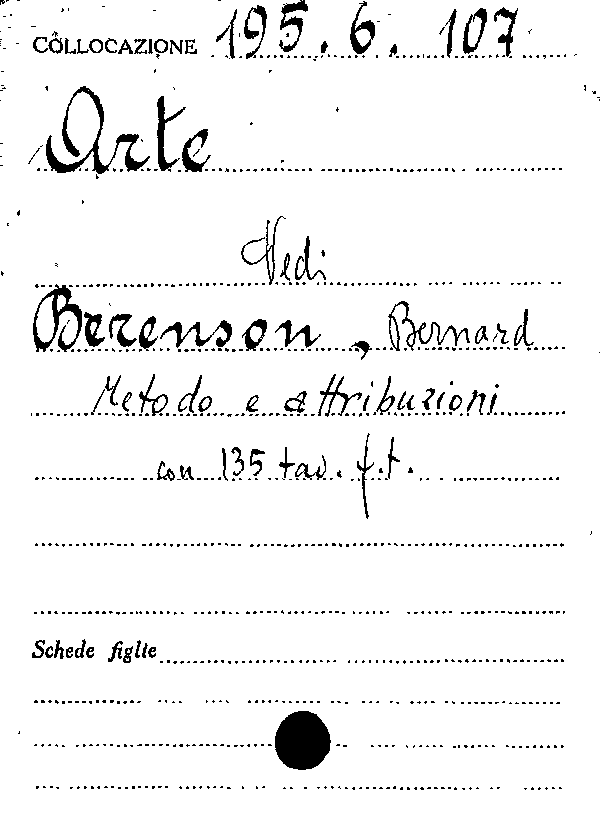 COLLOCAZIONE 195.6.107
Arte
Vedi
Berenson, Bernard
Metodo e attribuzioni
con 135 tav. f.t.
Schede figlie